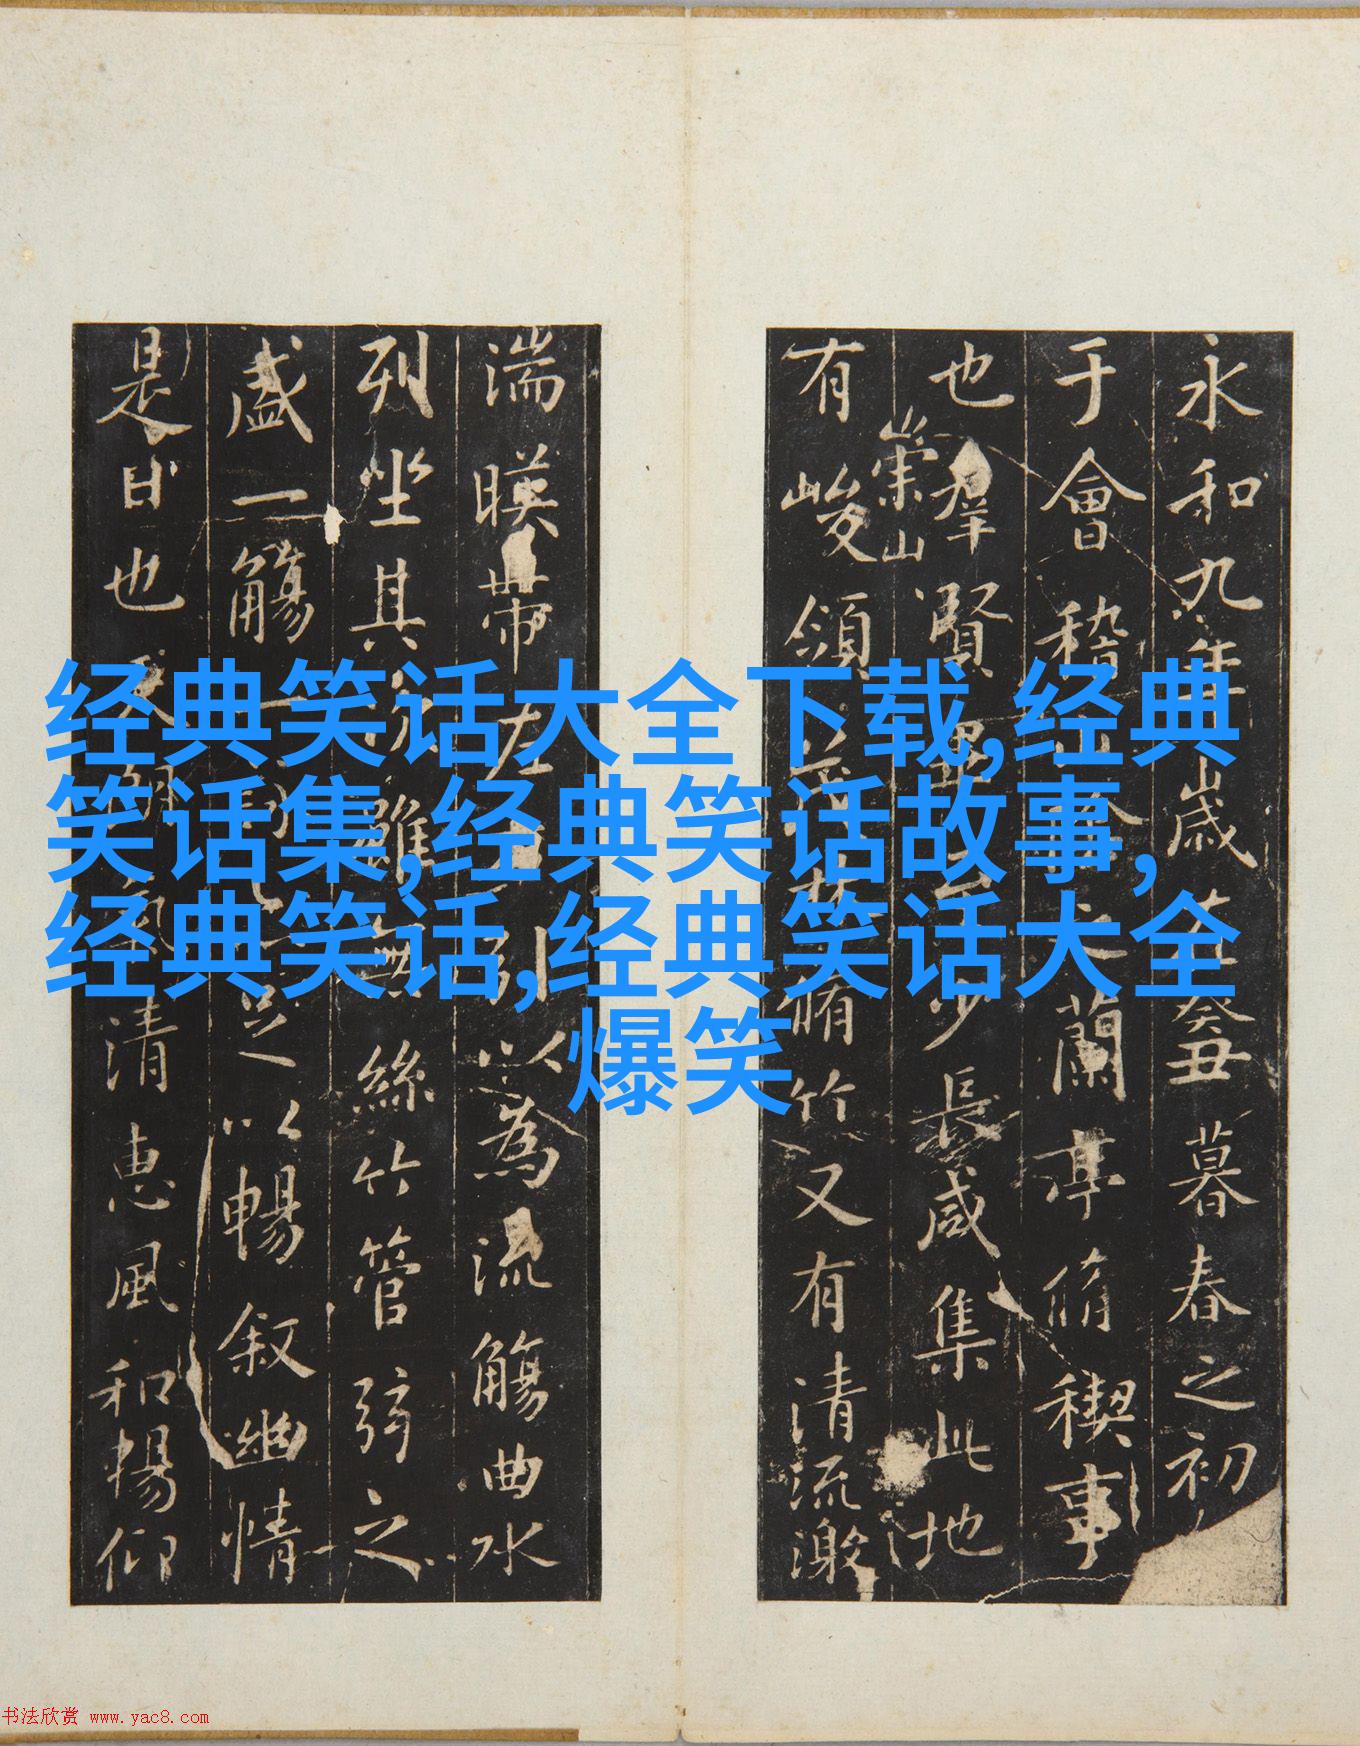 经典笑话大全下载,经典
笑话集,经典笑话故事,
经典笑话,经典笑话大全
爆笑
永和九年歲在癸丑暮春之初
于會稽山陰之蘭亭脩禊事
也群賢畢至少長咸集此地
崇山
有峻領茂林脩竹又有清流激
湍暎帶左右引以為流觴曲水
列坐其次雖無絲竹管弦之
盛一觴一詠亦足以暢叙幽情
是日也天朗氣清惠風和暢仰
书法欣赏 www.yac8.com